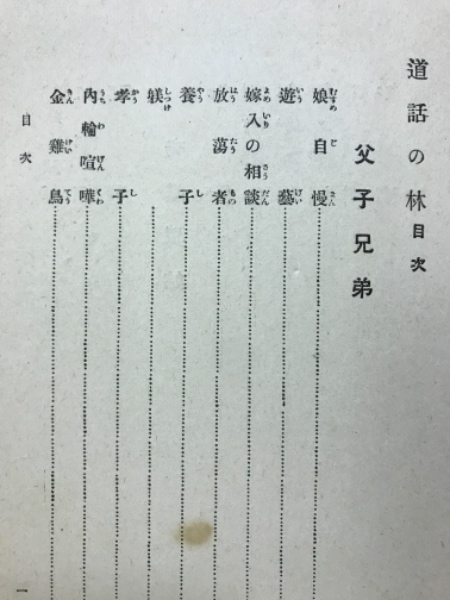 道話の林目次
父子兄弟
娘自慢
遊藝
嫁入の相談
放蕩者
養子
躾
孝子
內輪喧嘩
金雞鳥
目次
一